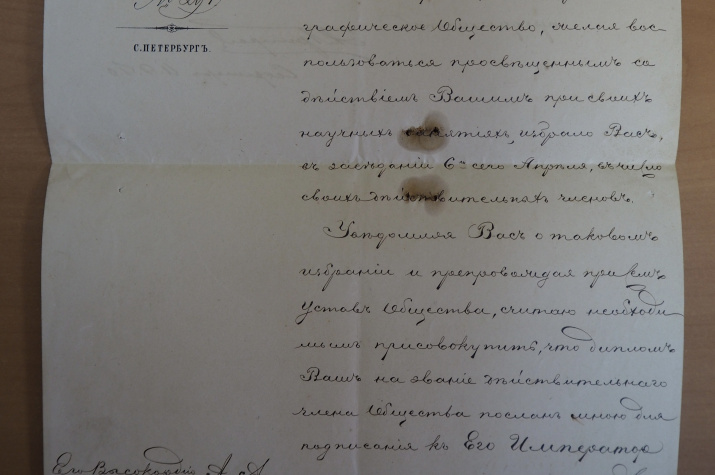 С.ПЕТЕРБУРГЪ.
графическое Общество, желая вос-
пользоваться просвѣщеннымъ со
дѣйствіемъ Вашимъ при своихъ
научныхъ занятіяхъ, избрало Васъ,
въ засѣданіи 6го сего Апрѣля, въ число
своихъ дѣйствительныхъ членовъ.
Увѣдомляя Васъ о таковомъ
избраніи и препровождая при семъ
Уставъ Общества, считаю необходи
мымъ присовокупить, что дипломъ
Вашъ на званіе дѣйствительнаго
члена Общества посланъ мною для
подписанія къ Его Император
Его Высокоблагородію А. А.